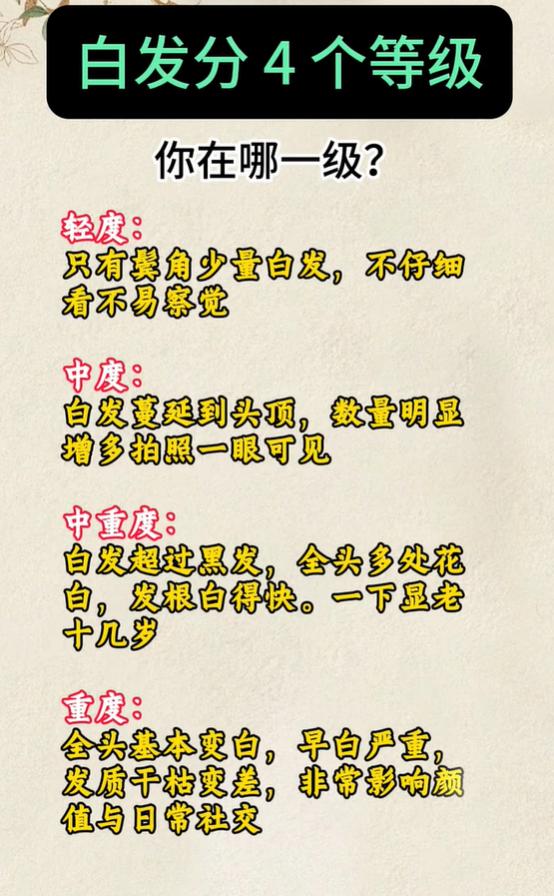 白发分 4 个等级
你在哪一级?
轻度:
只有鬓角少量白发，不仔细
看不易察觉
中度:
白发蔓延到头顶，数量明显
增多拍照一眼可见
中重度:
白发超过黑发，全头多处花
白，发根白得快。一下显老
十几岁
重度:
全头基本变白，早白严重，
发质干枯变差，非常影响颜
值与日常社交